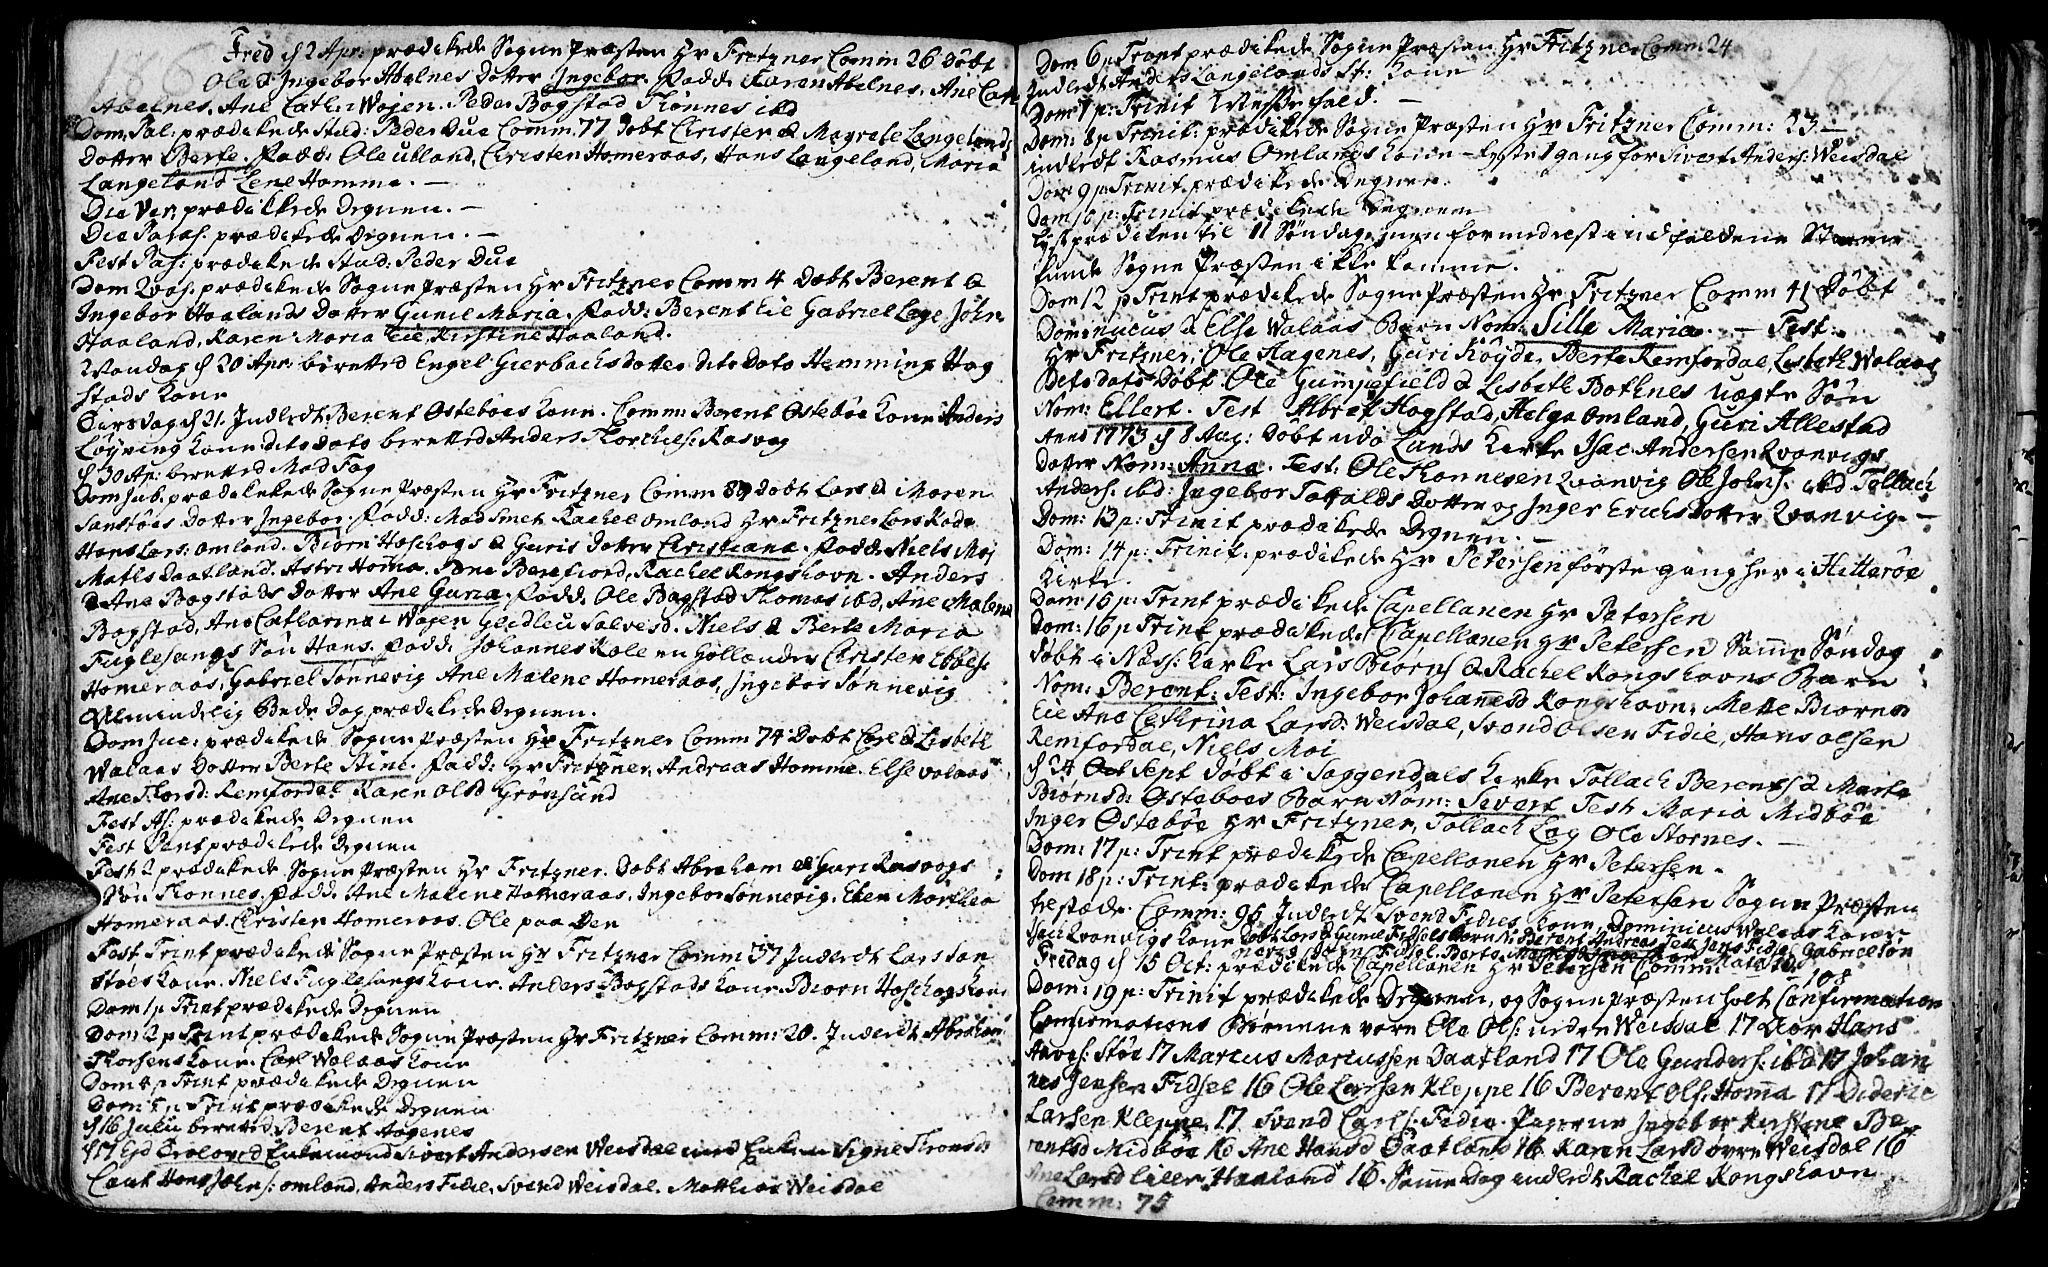 Fred d 2 Apr: prædikede Sogne Præsten Hr Fritzner Comm 26 Döbt
Ole & Ingebor Abelnes Dotter Ingebor. Fadd: Karen Abelnes. Ane Cath
Abelnes. Ane Cathr: Wojen. Peder Bogstad Thönnes ibd
Dom: Pal: prædikede Stud: Peder Due Comm. 77 Döbt Christen & Magrete Langelands
Dotter Berte. Fadd: Ole Utland, Christen Homeraas, Hans Langeland, Maria
Langeland Lene Homme. —
Die Ven: prædikede Degnen. —
Die Paras. prædikede Degnen. —
Fest Pas: prædikede Stud: Peder Due
Dom Quas. prædikede Sogne Præsten Hr Fritzner Comm 4 Döbt Berent &
Ingebor Haalands Dotter Gunil Maria. Fadd: Berent Eie Gabriel Lage John
Haaland, Karen Maria Eie, Kirstine Haaland.
Mandag d 20 Apr: beretted Engel Gierbachs dotter dito Dato Hemming Hog
stads Kone
Tirsdag d 21. Indledt Berent Östeböes Kone. Comm: Berent Östeböe Kone Anders
Löyning Kone dito Dato beretted Anders Thorkels: Rasvog
d 30 Ap: berettet Mad Fog
Dom Jub. prædikede Sogne Præsten Hr Fritzner Comm 89 Döbt Lars & Maren
Sanstöes Dotter Ingebor. Fadd: Mad Smet Rachel Omland Hr Fritzner Lars Rode
Hans Lars: Omland. Biörn Hoskogs & Guris dotter Christiana. Fadd. Niels Moi
Mathis Daatland. Astri Homa. Jone Berefiord, Rachel Kongshavn. Anders
& Ane Bogstads Dotter Ane Guria. Fadd. Ole Bogstad Thomas ibd, Ane Malene
Bogstad, Ane Catharina Wojen Gledleu Salvesd. Niels & Berte Maria
Fuglesangs Sön Hans. Fadd. Johannes Kole en Hollander Christen Ebbes:
Homeraas, Gabriel Sönnevig Ane Malene Homeraas, Ingebor Sönnevig
Almindelig Bede Dag prædikede Degnen.
Dom Juc: prædikede Sogne Præsten Hr Fritzner Comm 74: Döbt Carl & Lisbeth
Walaas Dotter Berte Stine. Fadd: Hr Fritzner, Andraas Homme. Else Valaas
Ane Thorsd: Remfordal Karen Olsd Grönsund
Fest As: prædikede Degnen
Fest Pent prædikede Degnen
Fest 2 prædikede Sogne Præsten Hr Fritzner. Döbt Abraham & Guri Rasvogs
Sön Thonnes. Fadd. Ane Malene Homeraas. Ingebor Sönnevig. Elen Marthea
Homeraas. Christen Homeraas. Ole paa Den
Fest Trint prædikede Sogne Præsten Hr Fritzner Comm 37 Inderdt Lars San
stöes Kone. Niels Fuglesangs Kone. Anders Bogstads Kone. Biorn Hoschogs Kone
Dom 1 p Trint prædikede Degnen
Dom 2 p Trint prædikede Sogne Præsten Hr Fritzner Comm: 20. Inderdt Abraham
Thorsens Kone. Carl Walaas Kone
Dom 4 p Trint prædikede Degnen
Dom: 5 p Trint prædikede Degnen
d 16 Julii beretted Berent Aagenes
d 17 Ejd Troloved Enkemand Sivert Andersen Weisdal med Enken Signe Thronsd:
Caut Hans Johns: Omland, Anders Fidie, Svend Weisdal. Matthias Weisdal
Dom 6 p Trint prædikede Sogne Præsten Hr Fritzner Comm: 24
Indledt Anders Langelands St: Kone
Dom 7 p: Trinit Messefald. —
Dom: 8 p Trinit: prædikede Sogne Præsten Hr Fritzner Comm: 23 —
indledt Rasmus Omlands Kone — Lyste 1 gang for Sivert Anders: Weisdal
Dom 9 p: Trinit. prædikede Degnen.
Dom 10 p: Trinit prædikede Degnen
Lyst prædiken til 11 Söndag, men formedelst indfaldene Storm
kunde Sogne Præsten ikke komme.
Dom 12 p Trint prædikede Sogne Præsten Hr Fritzner Comm 41 Döbt
Dominicus & Else Walaas Barn Nom: Sille Maria. — Test:
Hr Fritzner, Ole Aagenes, Guri Köyde, Berte Remfordal, Lisbeth Walaas
Dito dato Döbt Ole Gumpefield & Lisbeth Bothnes uægte Sön
Nom: Ellert. Test Albret Hogstad, Helga Omland, Guri Allestad
Anno 1773 d 8 Aug: Döbt udo Lands Kirke Isac Andersen Qvanvigs
Dotter Nom: Anna. Test: Ole Thonnesen Qvanvig Ole Johns: ibd Tollach
Anders: ibd: Ingebor Torvalds Dotter og Inger Erichs Dotter Qvanvig. —
Dom: 13 p: Trinit prædikede Degnen. —
Dom: 14 p: Trinit: prædikede Hr Petersen förste gang her i Hitteröe
Kirke.
Dom 15 p: Trint prædikede Capellanen Hr Petersen
Dom: 16 p Trint prædikede Capellanen Hr Petersen Samme Söndag
döbt i Næss: Kirke Lars Biorns & Rachel Kongshavns Barn
Nom: Berent: Test: Ingebor Johannesd Kongshavn, Mette Biorns
Eie Ane Cathrina Larsd: Weisdal, Svend Olsen Fidie, Hans Olsen
Remfordal, Niels Moi
d 24 Sept döbt i Soggendals Kirke Tollach Berents & Marte
Biörnsd: Östeböes Barn Nom: Sivert Test: Maria Midböe
Inger Östeböe Hr Fritzner, Tollach Log Ole Stornes. —
Dom: 17 p: Trint prædikede Capellanen Hr Petersen.
Dom 18 p: Trint: prædikede Capellanen Hr Petersen Sogne Præsten
tilstæde. Comm: 96 Inderdt Svend Fidies Kone, Dominicus Walaas Kone
Isac Qvanvigs Kone Döbt Lars & Gunil Fidsels Barn N: Berent Andreas Test Jens Fidsel Gabriel Sön
Fredag d 15 Oct: prædikede Capellanen Hr Petersen Comm: 108
Dom: 19 p: Trinit prædikede Degnen, og Sogne Præsten holt Confirmation
Confirmations Börnene vare Ole Ols: uden Weisdal 17 Aar Hans
Aavgs: Stöe 17 Marcus Marcussen Daatland 17 Ole Gunders: ibd 17 Johan
nes Jensen Fidsel 16 Ole Larsen Kleppe 16 Berent Ols: Homa 17 Dideric
Larsen Kleppe 17 Svend Carls: Fidie. Pigerne Ingebor Kirstine Be
rentsd Midböe 16 Ane Hansd Daatland 16 Karen Larsd övre Weisdal 16
Ane Larsd lille Haaland 16. Samme Dag indledt Rachel Kongshavn
Comm: 75